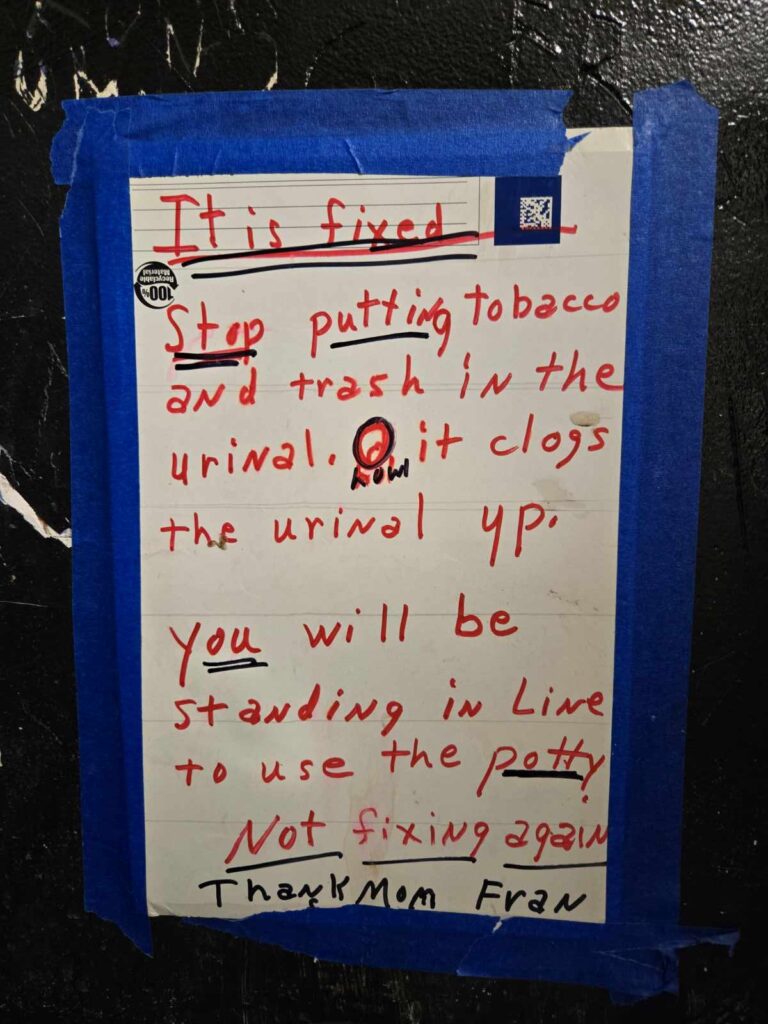 It is fixed
100%
Recyclable
Material
Stop putting tobacco
and trash in the
urinal. it clogs
the urinal yp.
you will be
standing in Line
to use the potty
Not fixing again
Thank Mom Fran